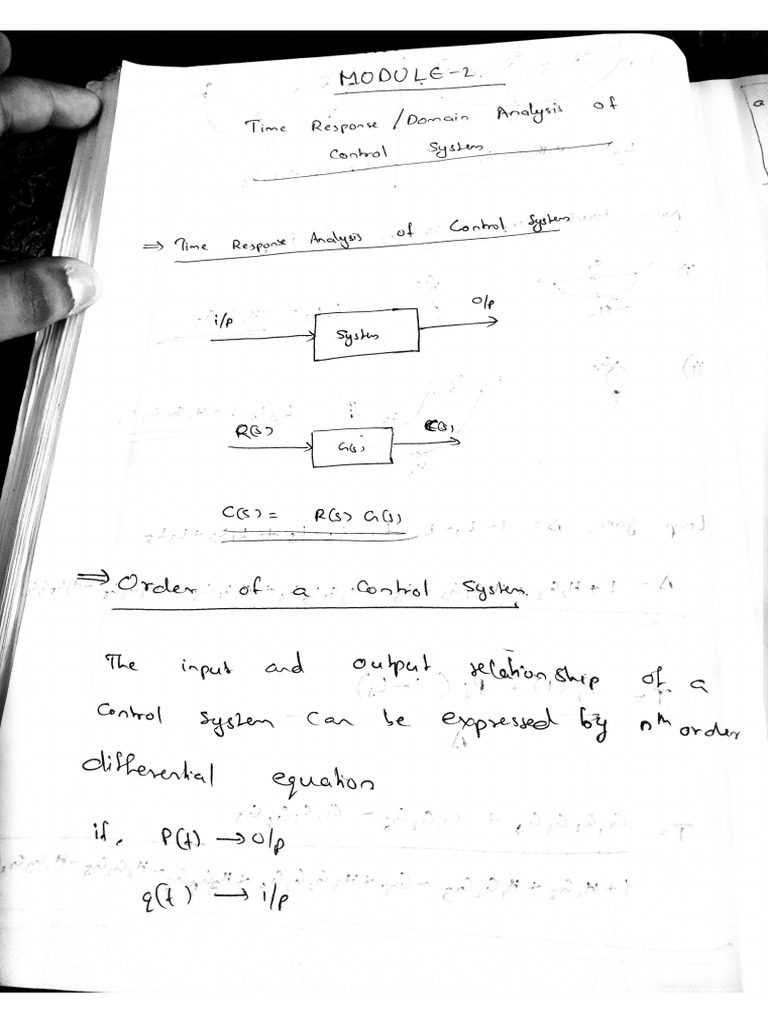 MODULE-2.
Time Response /Domain Analysis of
Control System.
⇒ Time Response Analysis of Control System
i/p
System
o/p
R(s)
G(s)
C(s)
C(s) = R(s) G(s)
⇒ Order of a Control System.
The input and output relationship of a
Control System can be expressed by nth order
differential equation
if, P(t) → o/p
q(t) → i/p